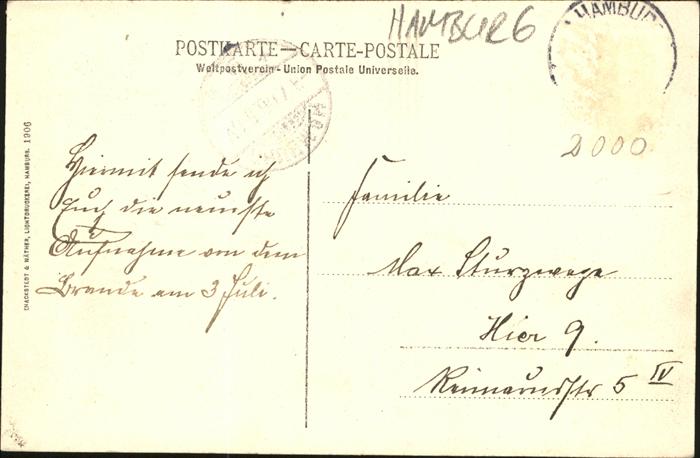 HAMBURG
HAMBURG
POSTKARTE—CARTE-POSTALE
Weltpostverein - Union Postale Universelle.
2000
KNACKSTEDT & NÄTHER, LICHTDRUCKEREI, HAMBURG. 1906
Hiermit sende ich
Euch die neueste
Aufnahme von dem
Brande am 3 Juli.
Familie
Max Sturzwege
Hier 9.
Reimarusstr 5 IV